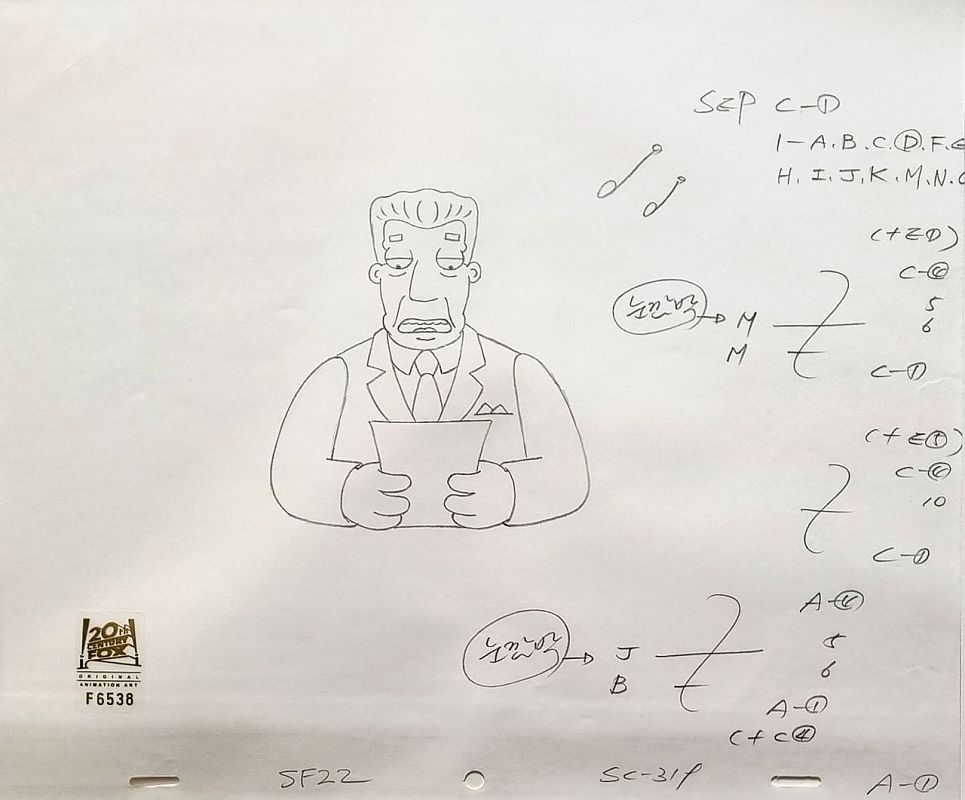 SEP C-①
1-A.B.C.Ⓓ.F.G
H.I.J.K.M.N.O
(+E①)
C-④
눈깜박
M
5
6
M
C-①
(+E①)
C-④
10
C-①
A-④
5
눈깜박
J
6
B
A-①
(+C④)
20th
CENTURY
FOX
ORIGINAL
ANIMATION ART
F6538
SF22
SC-319
A-①